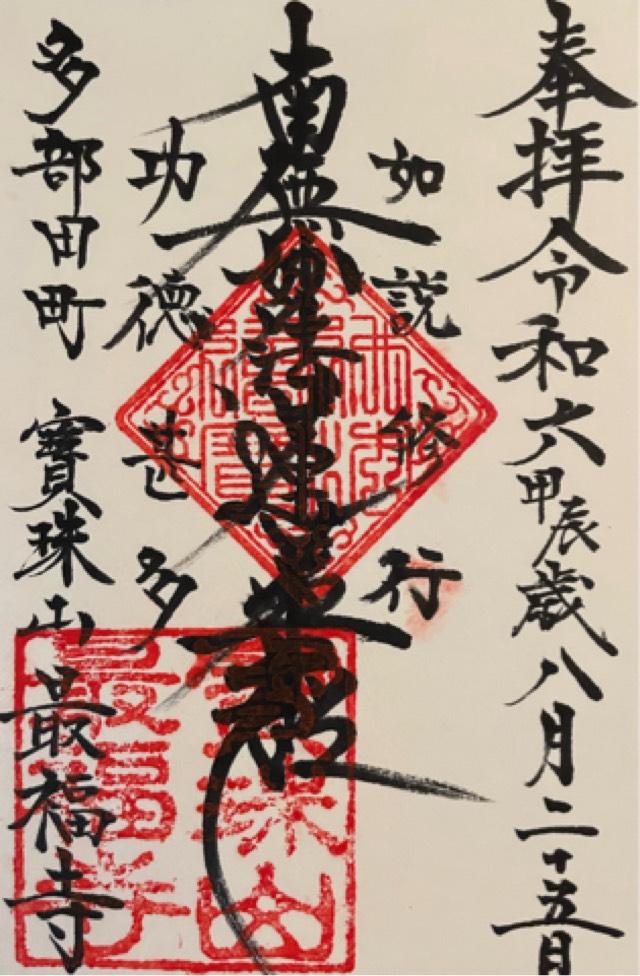 奉拝令和六甲辰歳八月二十五日
如説修行
南無妙法蓮華経
功徳甚多
多部田町 寳珠山 最福寺
最福寺